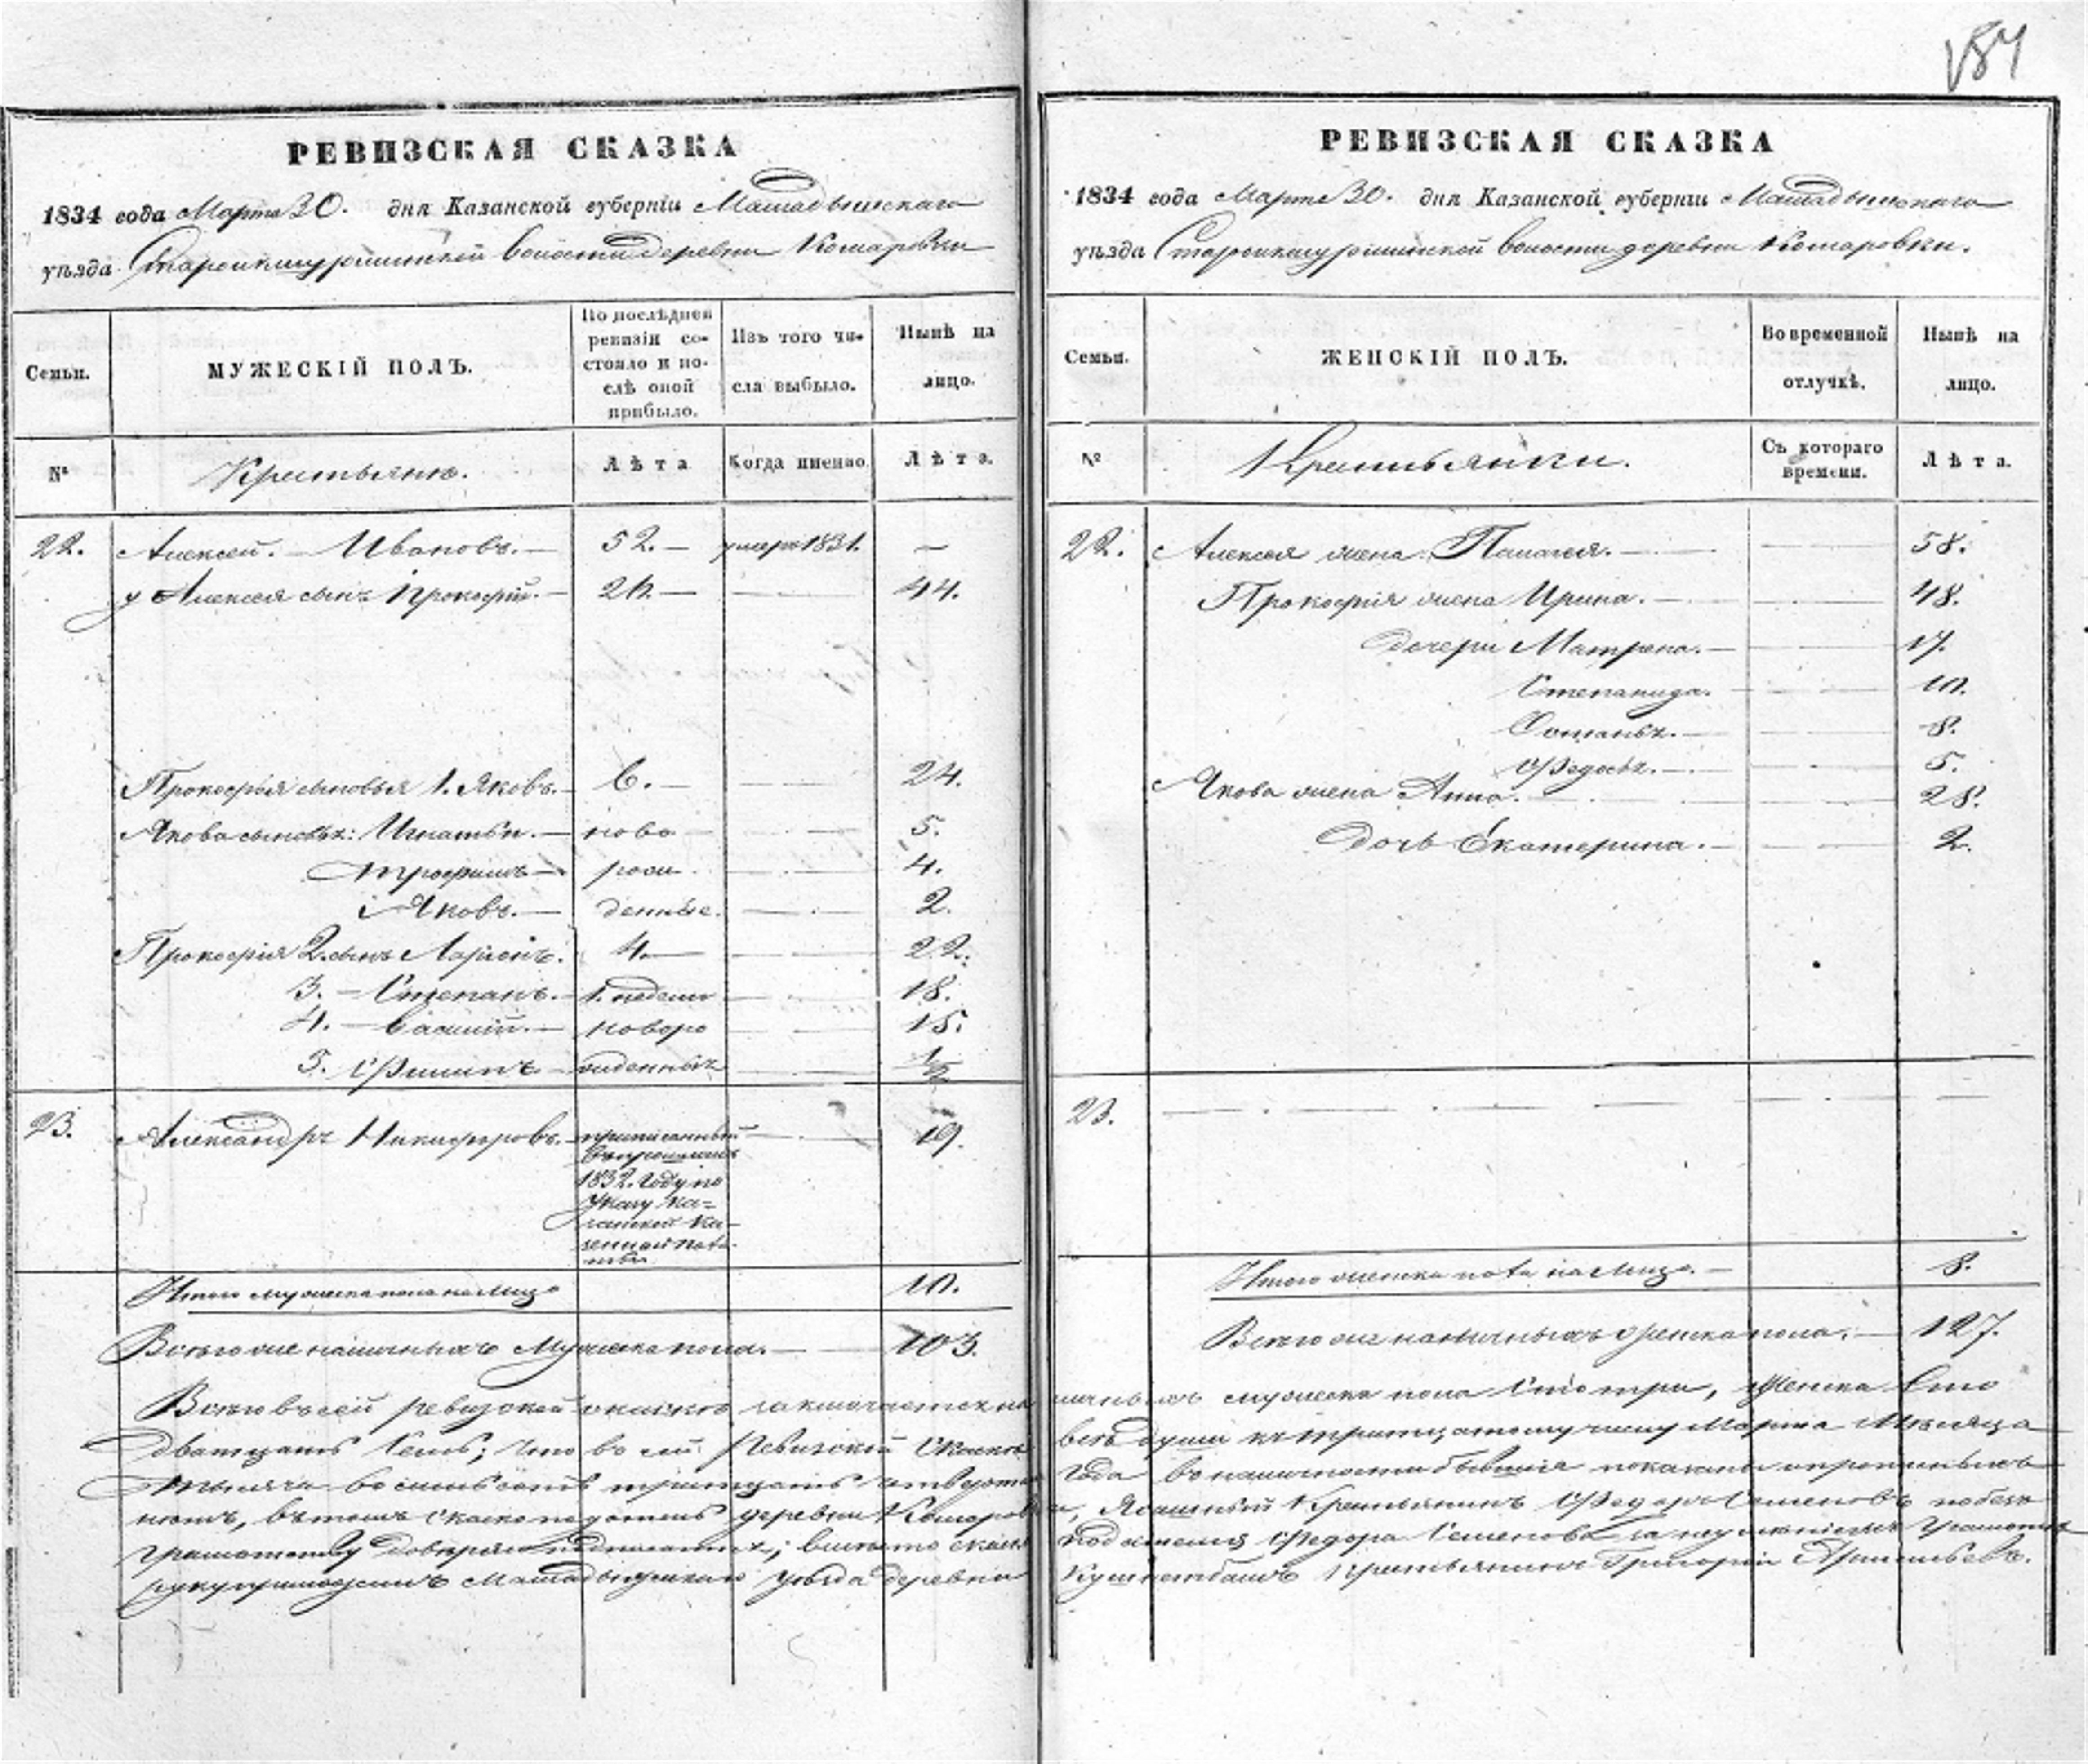 184
РЕВИЗСКАЯ СКАЗКА
1834 года Марта 30. дня Казанской губерніи Мамадышскаго
уѣзда Волости деревни Комаровки
Семьи.
МУЖЕСКІЙ ПОЛЪ.
По послѣдней ревизіи состояло и послѣ оной прибыло.
Изъ того числа выбыло.
Нынѣ на лицо.
№
Крестьяне.
Лѣта
Когда именно.
Лѣта.
22. Алексей Ивановъ. 52. умеръ 1831. —
у Алексея сынъ Прокофій. 26. 44.
Прокофья сыновья 1. Яковъ. 6. 24.
Якова сыновья: Игнатьи. ново 5.
Трофимъ рож 4.
Яковъ. денные. 2.
Прокофія 2. сынъ Ларіонъ. 4. 22.
3. Степанъ. 1. недели 18.
4. Василій. новоро 15.
5. Филипъ жденныхъ 1/2
23. Александръ Никифоровъ. приписанный 19.
1832. Году по
Указу Ка=
занской Ка-
зенной Пала
ты
Итого мужеска пола на лицо 10.
Всего же наличныхъ Мужеска пола. 103.
РЕВИЗСКАЯ СКАЗКА
1834 года Марта 30. дня Казанской губерніи Мамадышскаго
уѣзда волости деревни Комаровки.
Семьи.
ЖЕНСКІЙ ПОЛЪ.
Во временной отлучкѣ.
Нынѣ на лицо.
№
Крестьянки.
Съ котораго времени.
Лѣта.
22. Алексея жена Пелагея. 58.
Прокофія жена Ирина. 48.
дочери Матрена. 17.
Степанида. 10.
8.
Федосья. 5.
Якова жена Анна. 28.
дочь Екатерина. 2.
23.
Итого женска пола на лицо. 8.
Всего же наличныхъ женска пола. 127.
Всего въ сей ревизской сказке заключается на личныхъ мужеска пола Сто три, женска Сто
дватцать Семь; что во сей Ревизской Сказке всѣ души къ тритцатому числу Марта Месяца
тысяча восимьсотъ тритцать четвертаго Года въ наличности бывшія показаны
въ томъ деревни Комаровки, Ясашный Крестьянинъ Федоръ Семеновъ
Федора Семенова за неумѣніемъ грамоте
Мамадышскаго уѣзда деревни крестьянинъ Григорій